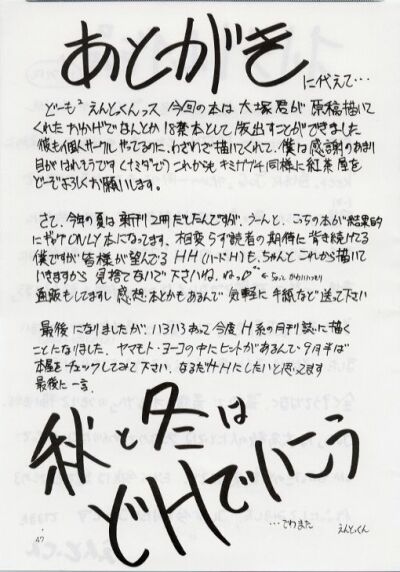 あとがき
に代えて…
どーも² えんとっくんっス 今回の本は大塚君が原稿描いて
くれたおかげでなんとか1冊本として版出すことができました
彼も個人サークルやってるのに、わざわざ描いてくれて、僕は感謝のあまり
目がはれそうです(ナミダで) これから先キミガブチ同様に紅茶屋を
どーぞよろしくお願いします。
さて、今年の夏は新刊2冊だしたんですが、うーんと、こちらの本が結果的
にギャグONLY本になってます。相変らず読者の期待に背き続けてる
僕ですが皆様が望んでるHH(ハードH)も、ちゃんとこれから描いて
いきますから見捨てないで下さいね、ねっ♡ ←ちょっとかわいいっり
通販もしてますし感想本とかもあるんで気軽に手紙など送って下さい
最後になりましたが、いろいろあって今度H系の月刊誌に描く
ことになりました。ヤマモト・ヨーコの中にヒントがあるんで9月半ば
本屋をチェックしてみて下さい、なるだけHにしたいと思ってます
最後に一言、
秋と冬は
どHでいこう
…でわまた えんとっくん
47